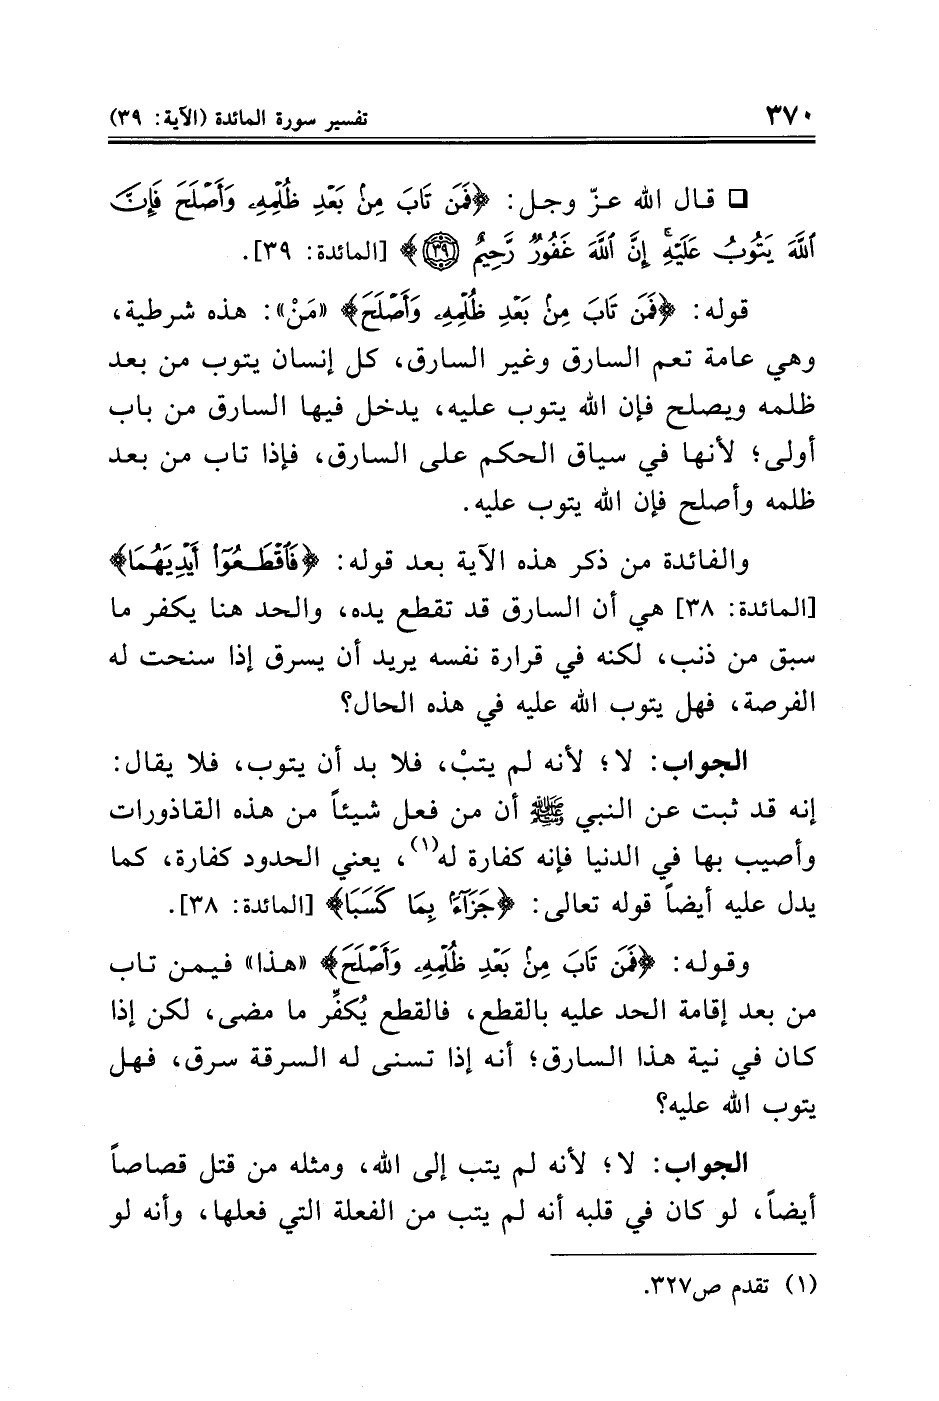 ٣٧٠ تفسير سورة المائدة (الآية: ٣٩)
❑ قال الله عزّ وجل: ﴿فَمَن تَابَ مِنۢ بَعْدِ ظُلْمِهِۦ وَأَصْلَحَ فَإِنَّ
ٱللَّهَ يَتُوبُ عَلَيْهِ ۗ إِنَّ ٱللَّهَ غَفُورٌ رَّحِيمٌ ٣٩﴾ [المائدة: ٣٩].
قوله: ﴿فَمَن تَابَ مِنۢ بَعْدِ ظُلْمِهِۦ وَأَصْلَحَ﴾ «مَنْ»: هذه شرطية،
وهي عامة تعم السارق وغير السارق، كل إنسان يتوب من بعد
ظلمه ويصلح فإن الله يتوب عليه، يدخل فيها السارق من باب
أولى؛ لأنها في سياق الحكم على السارق، فإذا تاب من بعد
ظلمه وأصلح فإن الله يتوب عليه.
والفائدة من ذكر هذه الآية بعد قوله: ﴿فَٱقْطَعُوٓا۟ أَيْدِيَهُمَا﴾
[المائدة: ٣٨] هي أن السارق قد تقطع يده، والحد هنا يكفر ما
سبق من ذنب، لكنه في قرارة نفسه يريد أن يسرق إذا سنحت له
الفرصة، فهل يتوب الله عليه في هذه الحال؟
الجواب: لا؛ لأنه لم يتبْ، فلا بد أن يتوب، فلا يقال:
إنه قد ثبت عن النبي ﷺ أن من فعل شيئاً من هذه القاذورات
وأصيب بها في الدنيا فإنه كفارة له(١)، يعني الحدود كفارة، كما
يدل عليه أيضاً قوله تعالى: ﴿جَزَآءًۢ بِمَا كَسَبَا﴾ [المائدة: ٣٨].
وقوله: ﴿فَمَن تَابَ مِنۢ بَعْدِ ظُلْمِهِۦ وَأَصْلَحَ﴾ «هذا» فيمن تاب
من بعد إقامة الحد عليه بالقطع، فالقطع يُكفِّر ما مضى، لكن إذا
كان في نية هذا السارق؛ أنه إذا تسنى له السرقة سرق، فهل
يتوب الله عليه؟
الجواب: لا؛ لأنه لم يتب إلى الله، ومثله من قتل قصاصاً
أيضاً، لو كان في قلبه أنه لم يتب من الفعلة التي فعلها، وأنه لو
(١) تقدم ص٣٢٧.